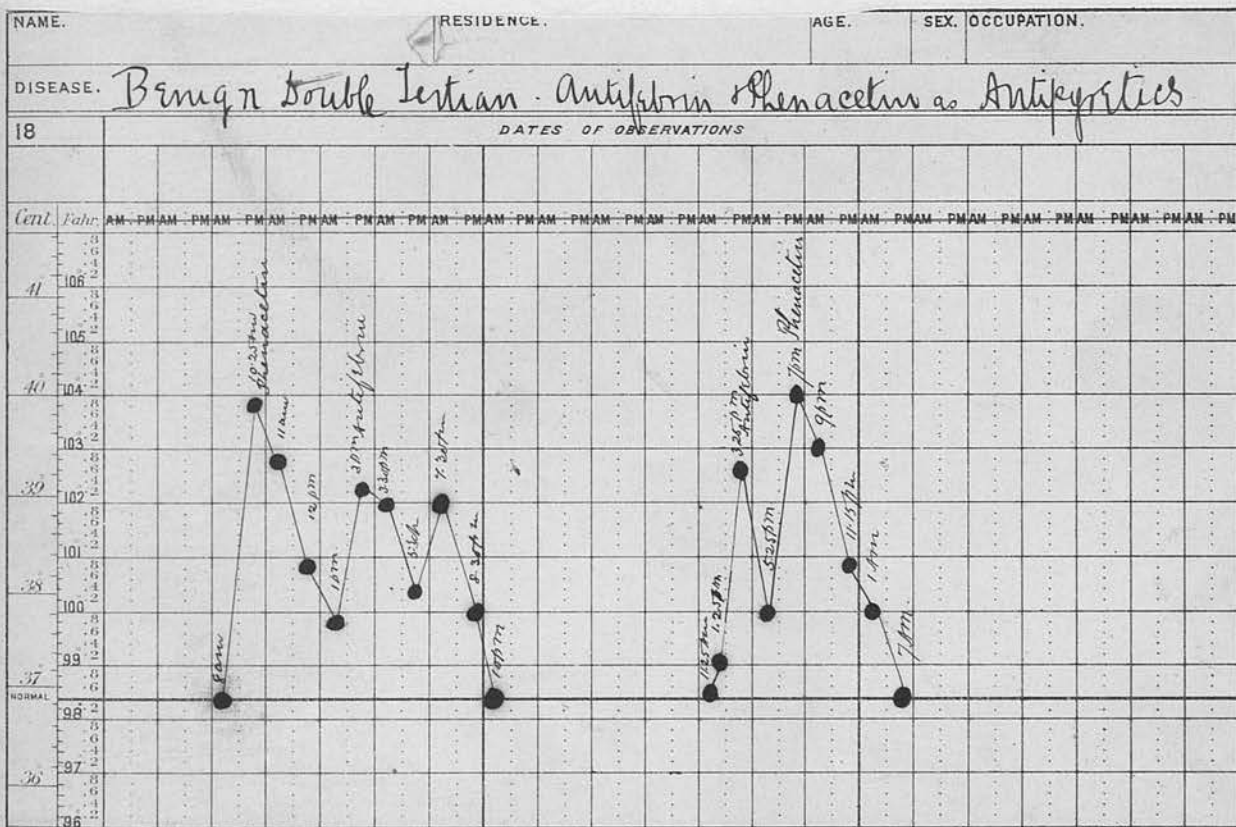 NAME. RESIDENCE. AGE. SEX. OCCUPATION.
DISEASE. Benign Double Tertian. Antifebrin & Phenacetin as Antipyretics
18 DATES OF OBSERVATIONS
Cent. Fahr. AM PM AM PM AM PM AM PM AM PM AM PM AM PM AM PM AM PM AM PM AM PM AM PM AM PM AM PM AM PM AM PM AM PM AM PM AM PM AM PM AM PM
106
41
105
40 104
103
39
102
101
38
100
99
37
NORMAL
98
97
36
96
8 am
Phenacetin
11 am
12 pm
1 pm
3 pm Antifebrin
3.30pm
7.30pm
8.30pm
10pm
1.25pm
3.25pm
Antifebrin
5.25pm
7pm Phenacetin
9pm
11.15pm
1 Am
7pm